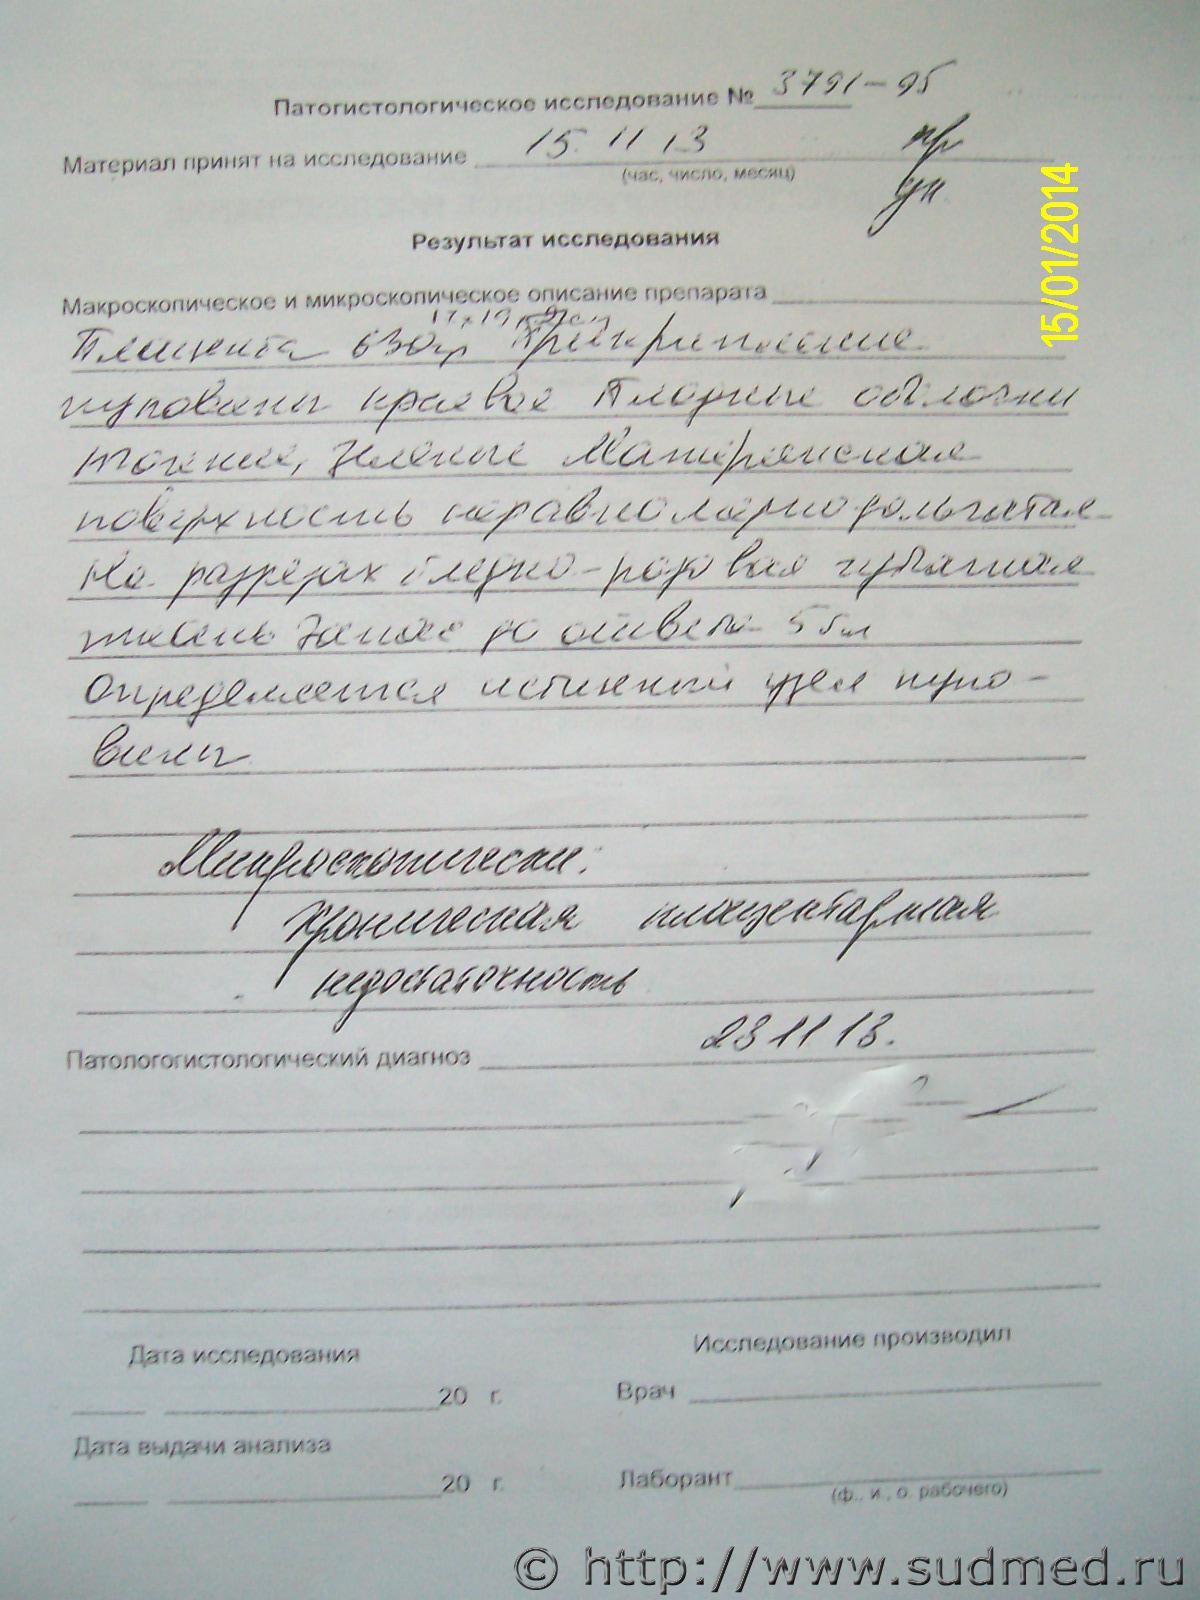 Патогистологическое исследование № 3791-95
Материал принят на исследование 15. 11 13 пр
(час, число, месяц)
ум
Результат исследования
Макроскопическое и микроскопическое описание препарата
17х19х2см
Плацента 630гр Прикрипление
пуповины краевое Плодные оболочки
тонкие, зеленые Материнская
поверхность неравномернодольчатая
На разрезах бледно-розовая губчатая
ткань
Определяется истинный узел пупо-
вины
Микроскопически:
хроническая плацентарная
недостаточность
23 11 13.
Патологогистологический диагноз
Дата исследования
Исследование производил
20 г.
Врач
Дата выдачи анализа
20 г.
Лаборант
(ф., и., о. рабочего)
15/01/2014
© http://www.sudmed.ru